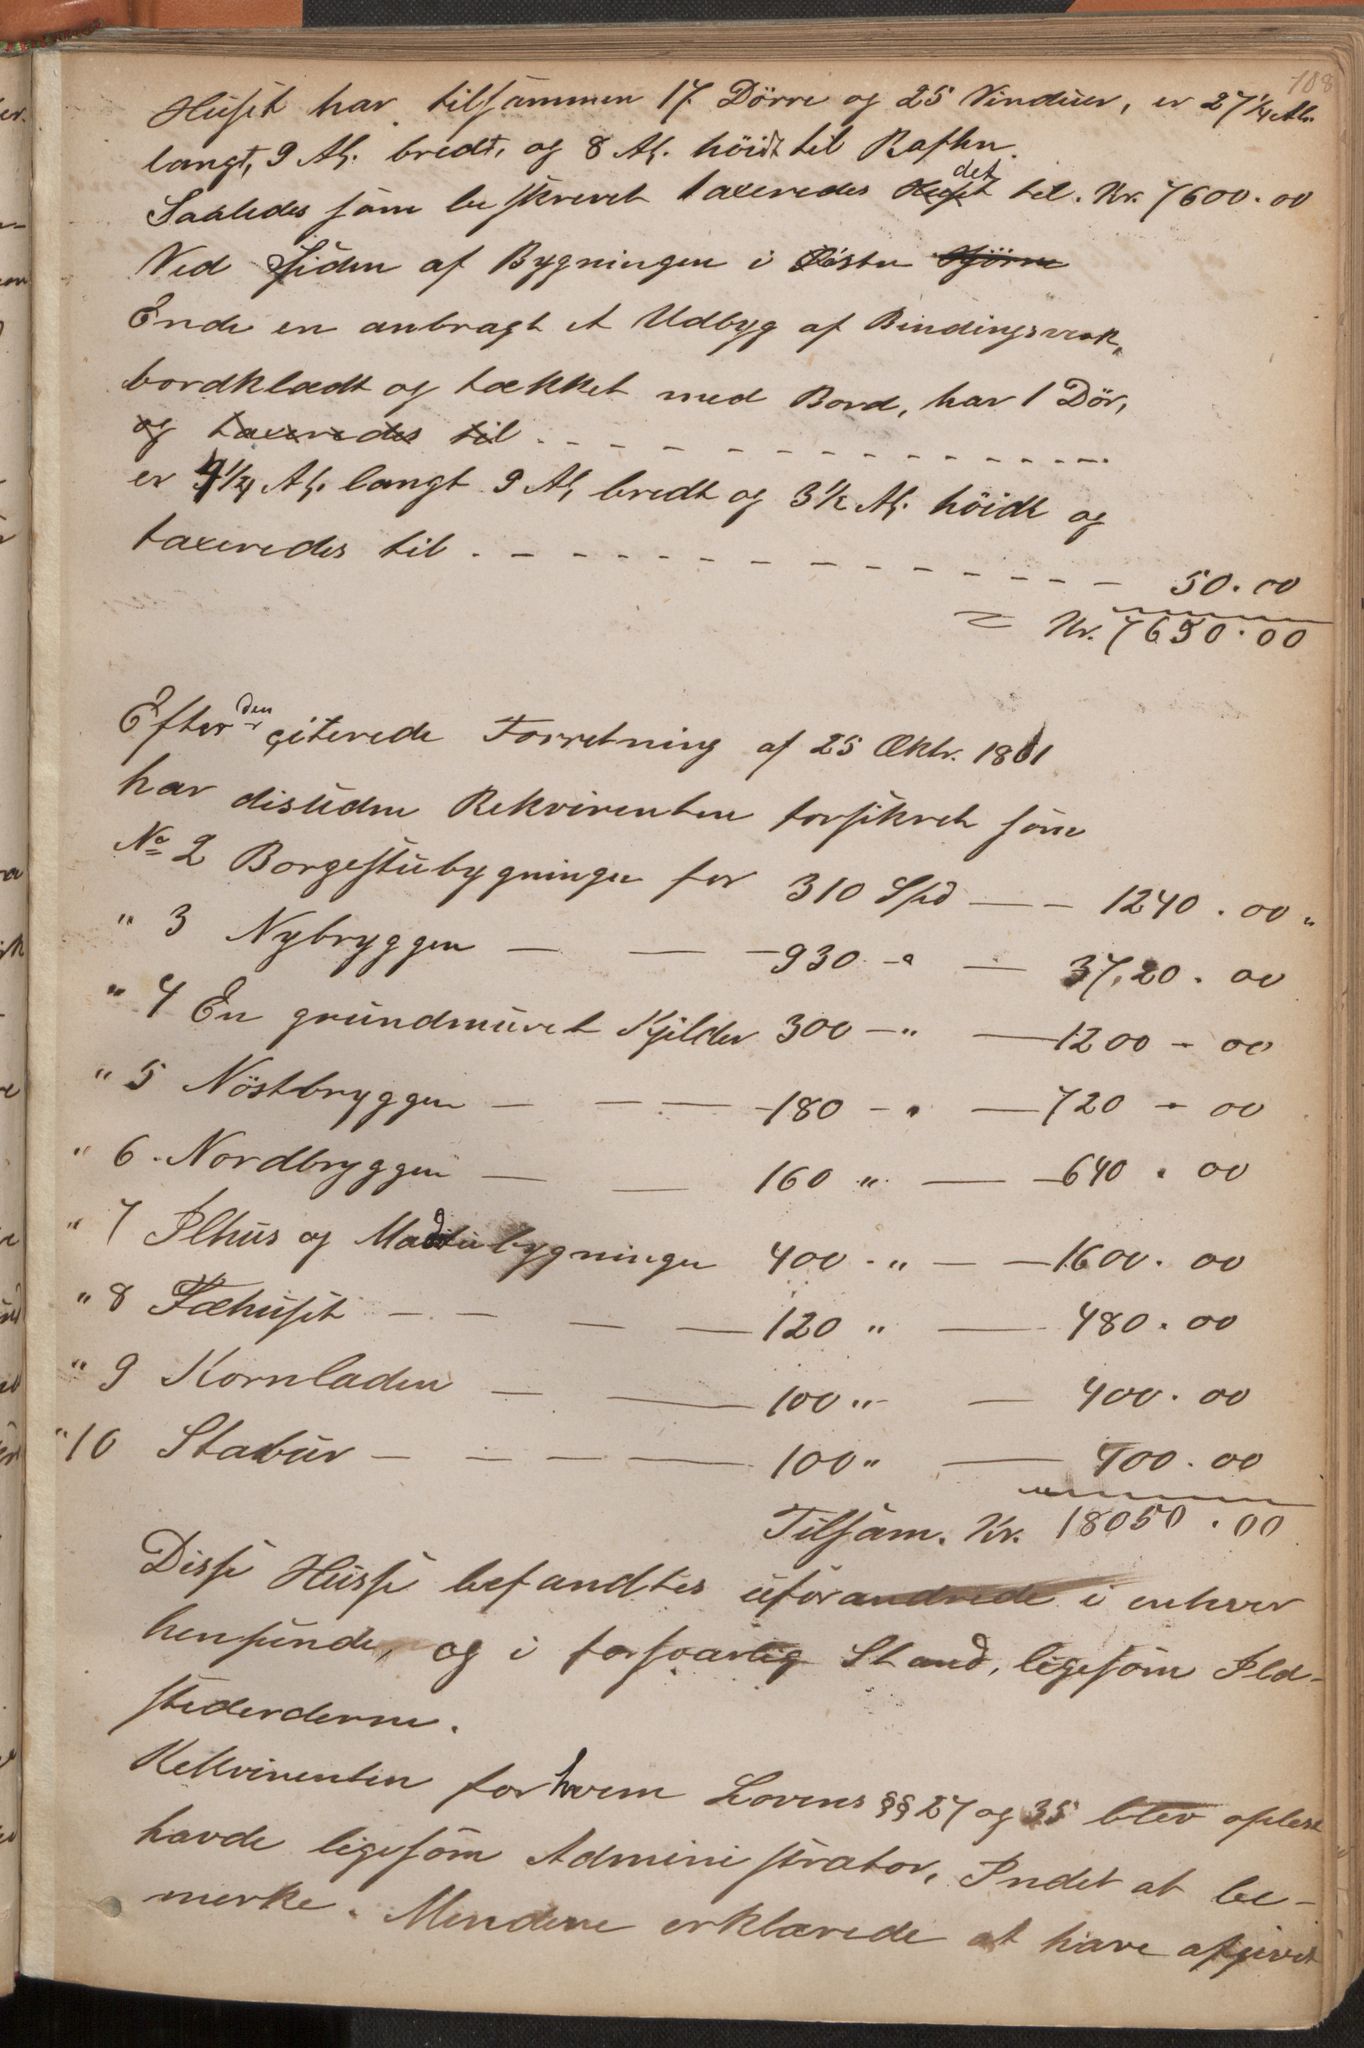 108
Huset har tilsammen 17 Dörre og 25 Vinduer, er 27 1/4 Al.
langt, 9 Al. bredt, og 8 Al. höidt til Rafhn.
Saaledes som beskrevet taxeredes Huset det til. Kr. 7600.00
Ved Siden af Bygningen i Østre Hjörne
Ende en anbragt et Udbyg af Bindingsværk,
bordklædt og tækket med Bord, har 1 Dör,
og taxeredes til - - - - - - - - - - - - -
er 4 1/4 Al. langt 9 Al. bredt og 3 1/2 Al. höidt og
taxeredes til - - - - - - - - - - - - - 50.00
= Kr. 7650.00
Efter den citerede Forretning af 25 Oktr. 1861
har desuden Rekvirenten forsikret som
No 2 Borgestubygningen for 310 Spd — — 1240.00 "
" 3 Nybryggen — — — 930 - " — 3720.00
" 4 En grundmuret Kjelder 300 - " — 1200 - 00
" 5 Nöstbryggen — — — 180 - " — 720 - 00
" 6 Nordbryggen — — 160 " — — 640.00
" 7 Ilhus og Madstubygningen 400 - " — — 1600.00
" 8 Fæhuset — — — — 120 " — 480.00
" 9 Kornladen — — 100 " — 400.00
" 10 Stabur — — — — 100 " — 400.00
Tilsam. Kr. 18050.00
Disse Husse befandtes uforandrede i enhver
henseende, og i forsvarlig Stand, ligesom Ild-
stederderne.
Rekvirenten for hvem Lovens §§ 27 og 35 blev oplæst
havde ligesom Administrator, Indet at be-
merke. Mendene erklærede at have afgivet